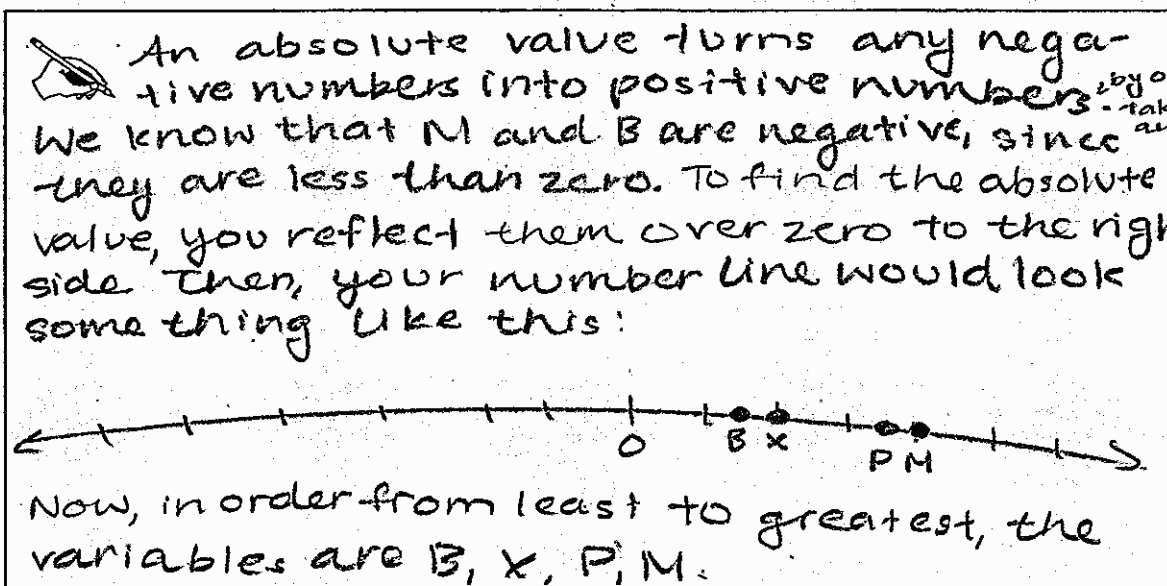 An absolute value turns any nega-
tive numbers into positive numbers
We know that M and B are negative, since
they are less than zero. To find the absolute
value, you reflect them over zero to the
side Then, your number line would look
some thing like this:
O B X P M
Now, in order from least to greatest, the
variables are B, X, P, M.